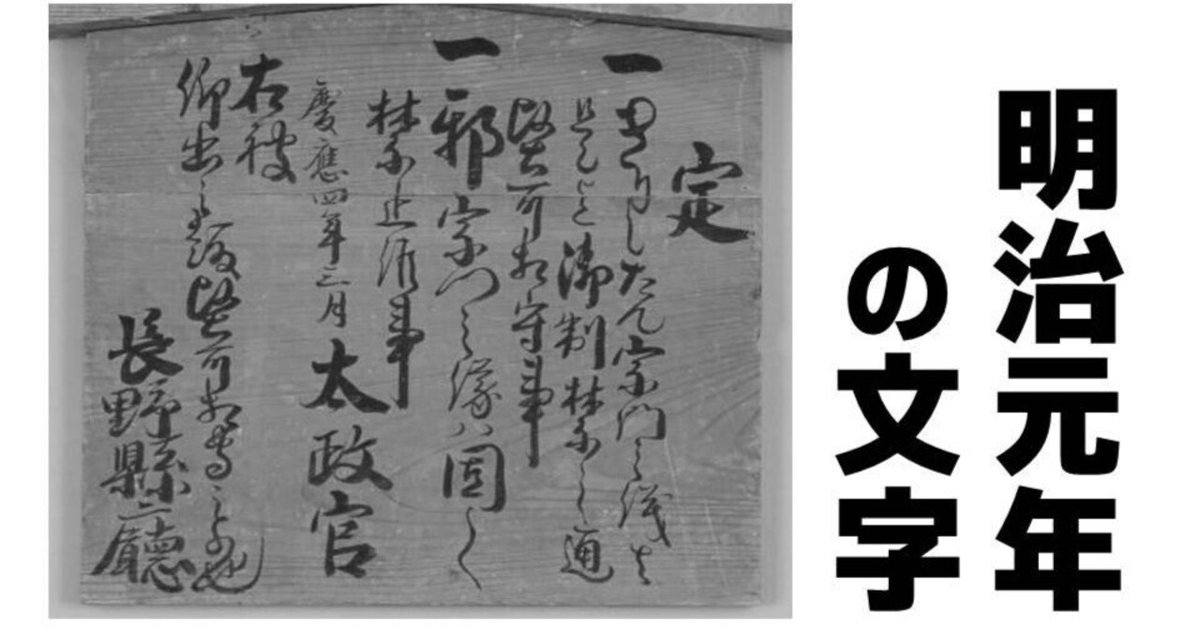 明治元年
の文字
定
一 きりしたん宗門之儀は
是御制禁之通
堅可相守事
一 邪宗門之儀ハ固く
禁止候事
慶應四年三月 太政官
右被
仰出之趣堅可相守もの也
長野縣廳